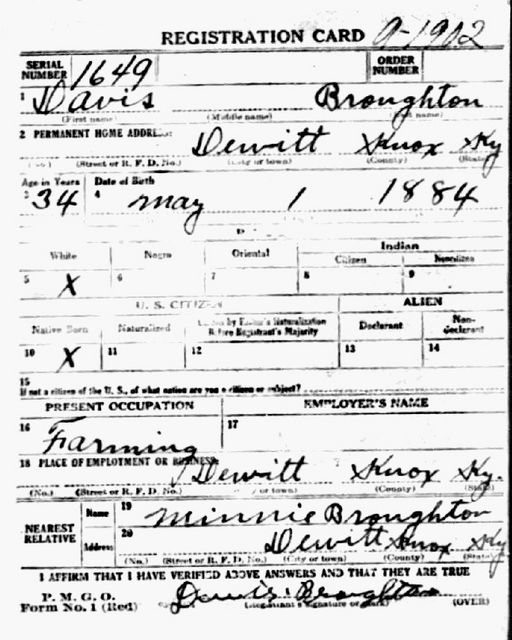 REGISTRATION CARD A-1902
SERIAL NUMBER 1649 ORDER NUMBER
1 Davis Broughton
(First name) (Middle name) (Last name)
2 PERMANENT HOME ADDRESS:
Dewitt Knox Ky
(No.) (Street or R. F. D. No.) (City or town) (County) (State)
Age in Years Date of Birth
3 34 4 May 1 1884
White Negro Oriental Indian
Citizen Noncitizen
5 X 6 7 8 9
U. S. CITIZEN ALIEN
Native Born Naturalized Citizen by Father's Naturalization Before Registrant's Majority Declarant Non-declarant
10 X 11 12 13 14
15
If not a citizen of the U. S., of what nation are you a citizen or subject?
PRESENT OCCUPATION EMPLOYER'S NAME
16 Farming 17
18 PLACE OF EMPLOYMENT OR BUSINESS:
Dewitt Knox Ky.
(No.) (Street or R. F. D. No.) (City or town) (County) (State)
NEAREST RELATIVE Name 19 Minnie Broughton
Address 20 Dewitt Knox Ky
(No.) (Street or R. F. D. No.) (City or town) (County) (State)
I AFFIRM THAT I HAVE VERIFIED ABOVE ANSWERS AND THAT THEY ARE TRUE
P. M. G. O.
Form No. 1 (Red) Davis Broughton
(Registrant's signature or mark) (OVER)